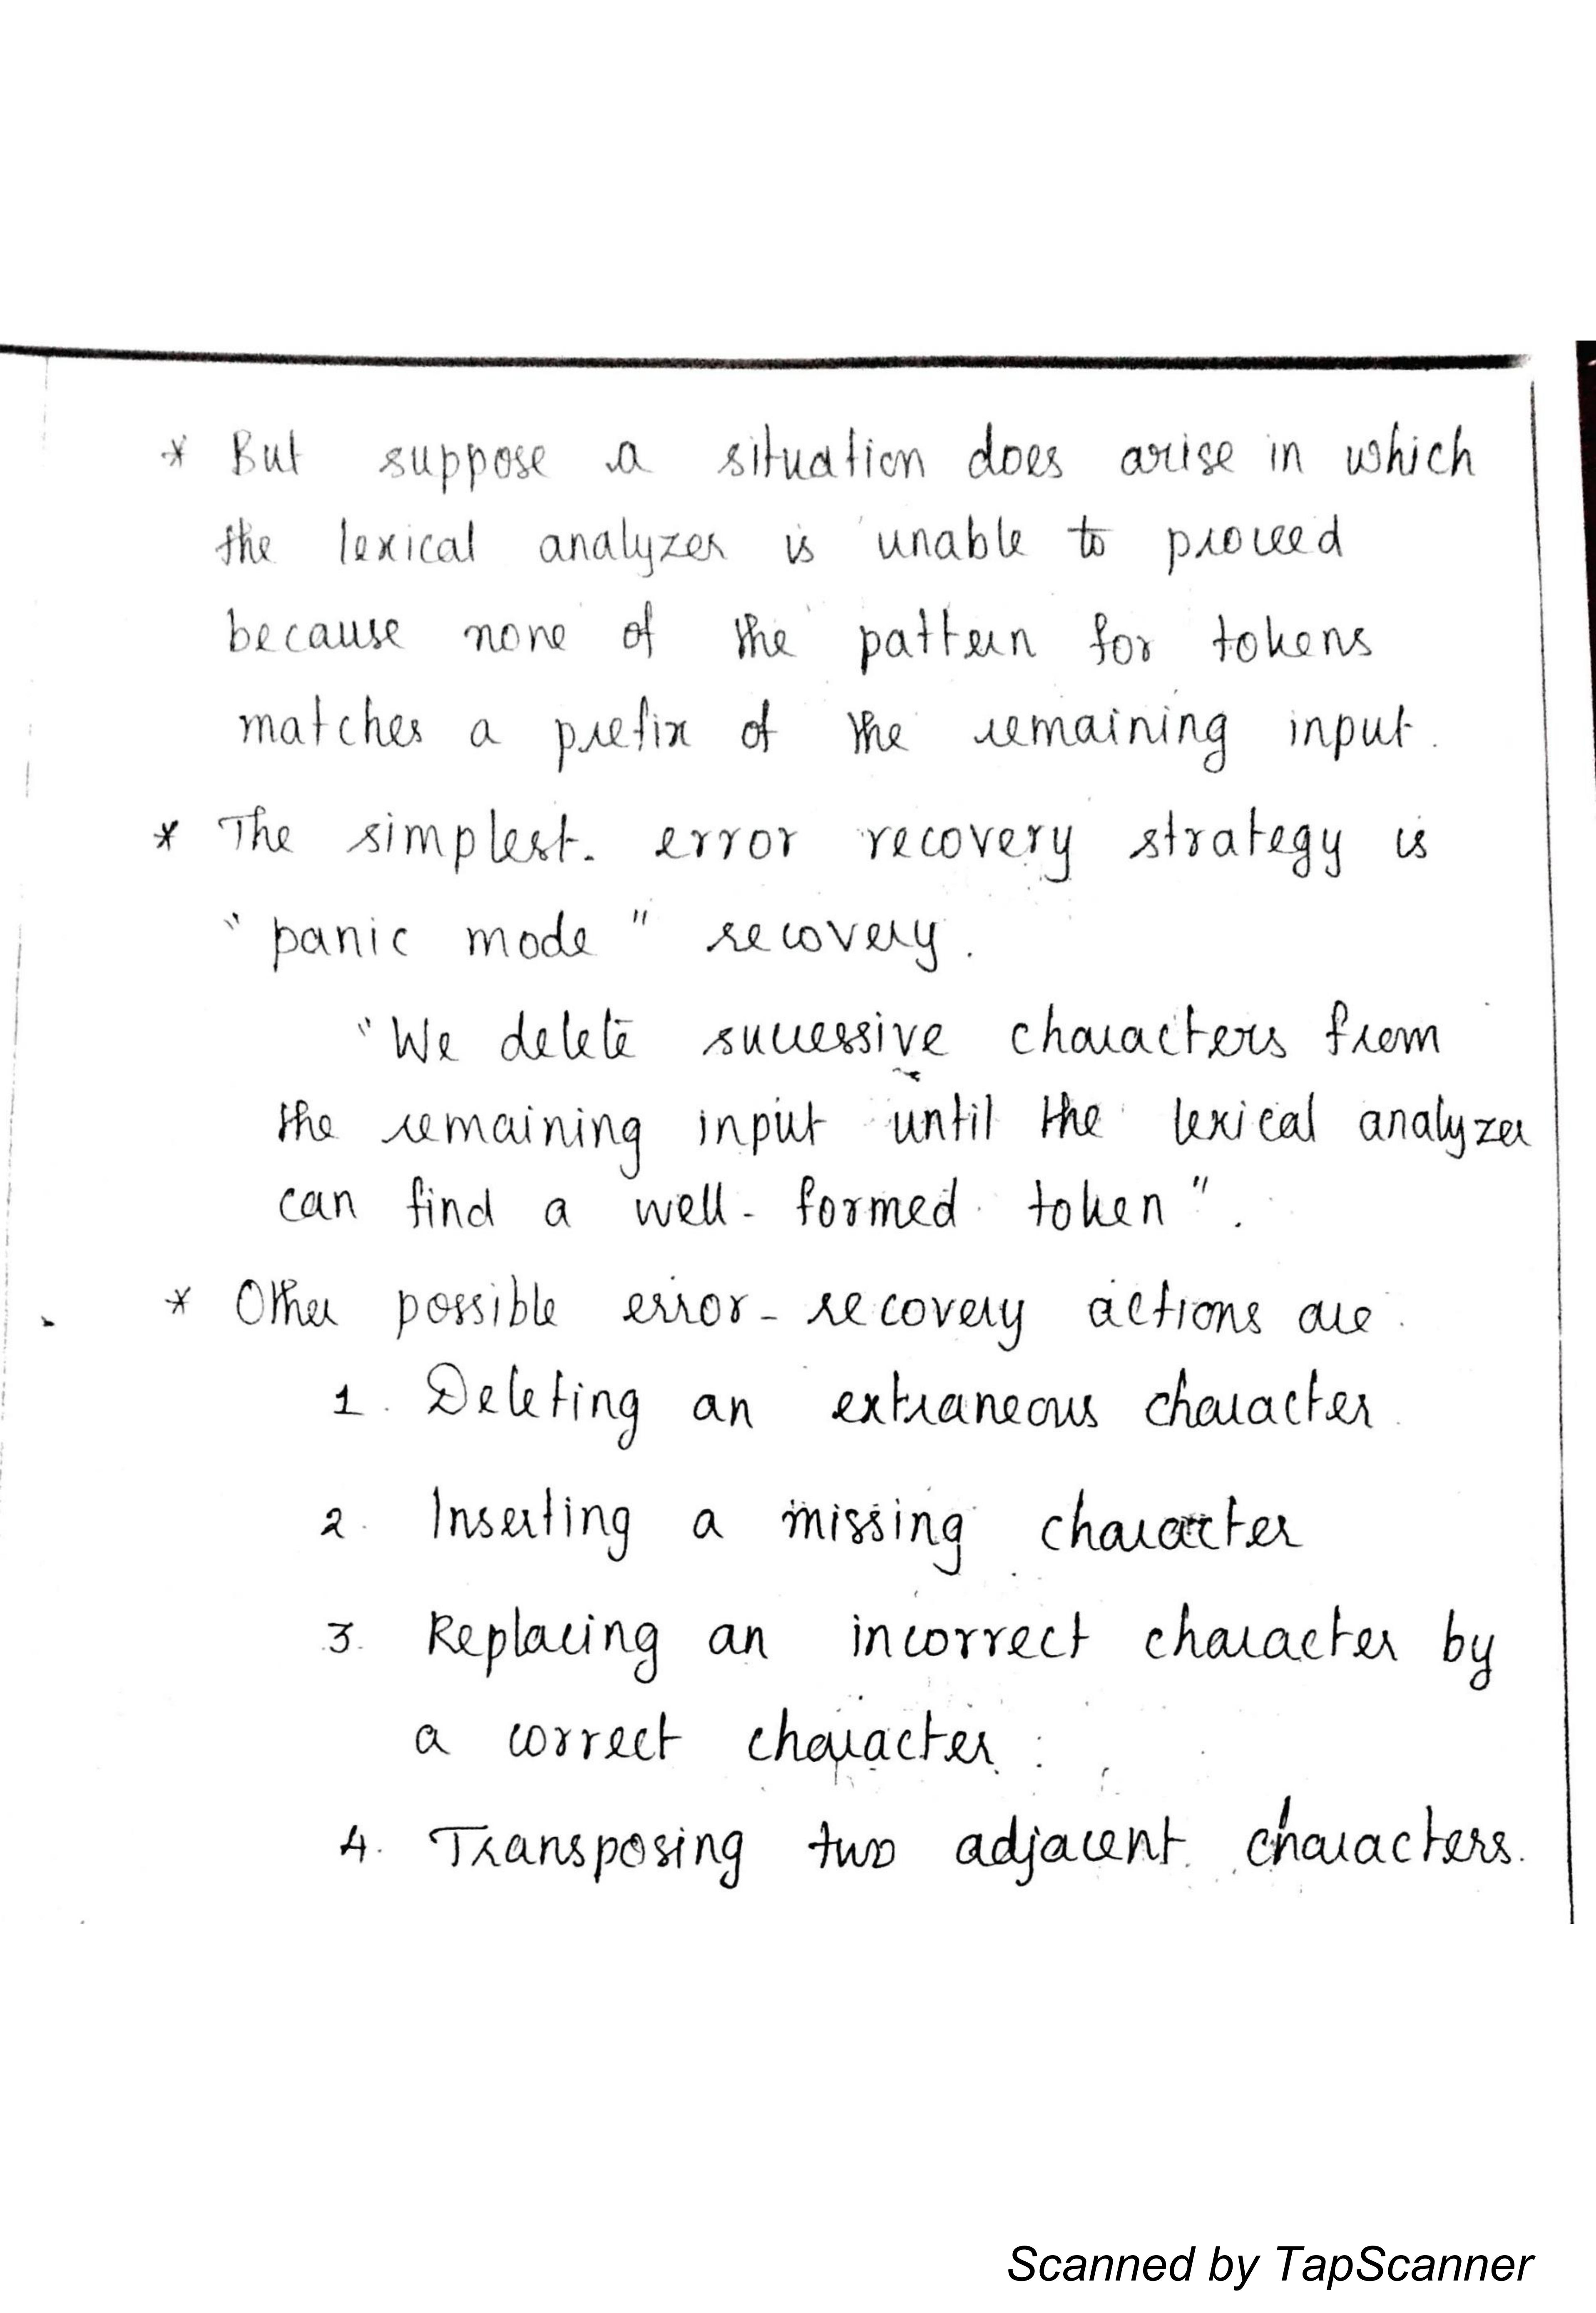 * But suppose a situation does arise in which
the lexical analyzer is unable to proceed
because none of the pattern for tokens
matches a prefix of the remaining input.
* The simplest. error recovery strategy is
"panic mode" recovery.
"We delete successive characters from
the remaining input until the lexical analyzer
can find a well-formed token".
* Other possible error-recovery actions are
1. Deleting an extraneous character.
2. Inserting a missing character
3. Replacing an incorrect character by
a correct character.
4. Transposing two adjacent characters.
Scanned by TapScanner